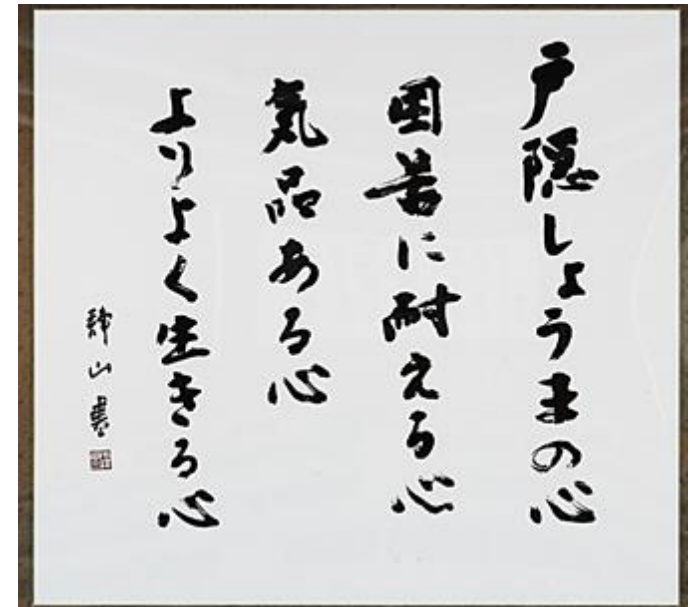 戸隠しょうまの心
困苦に耐える心
気品ある心
よりよく生きる心
静山書